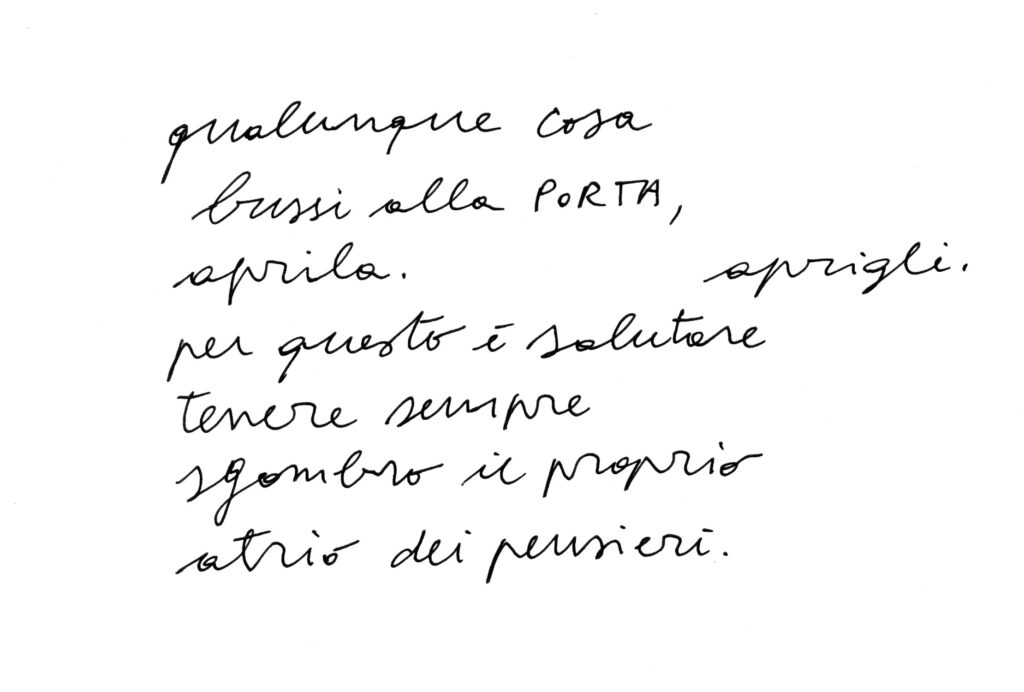 qualunque cosa
bussi alla PORTA,
aprila. aprigli.
per questo è salutare
tenere sempre
sgombro il proprio
atrio dei pensieri.